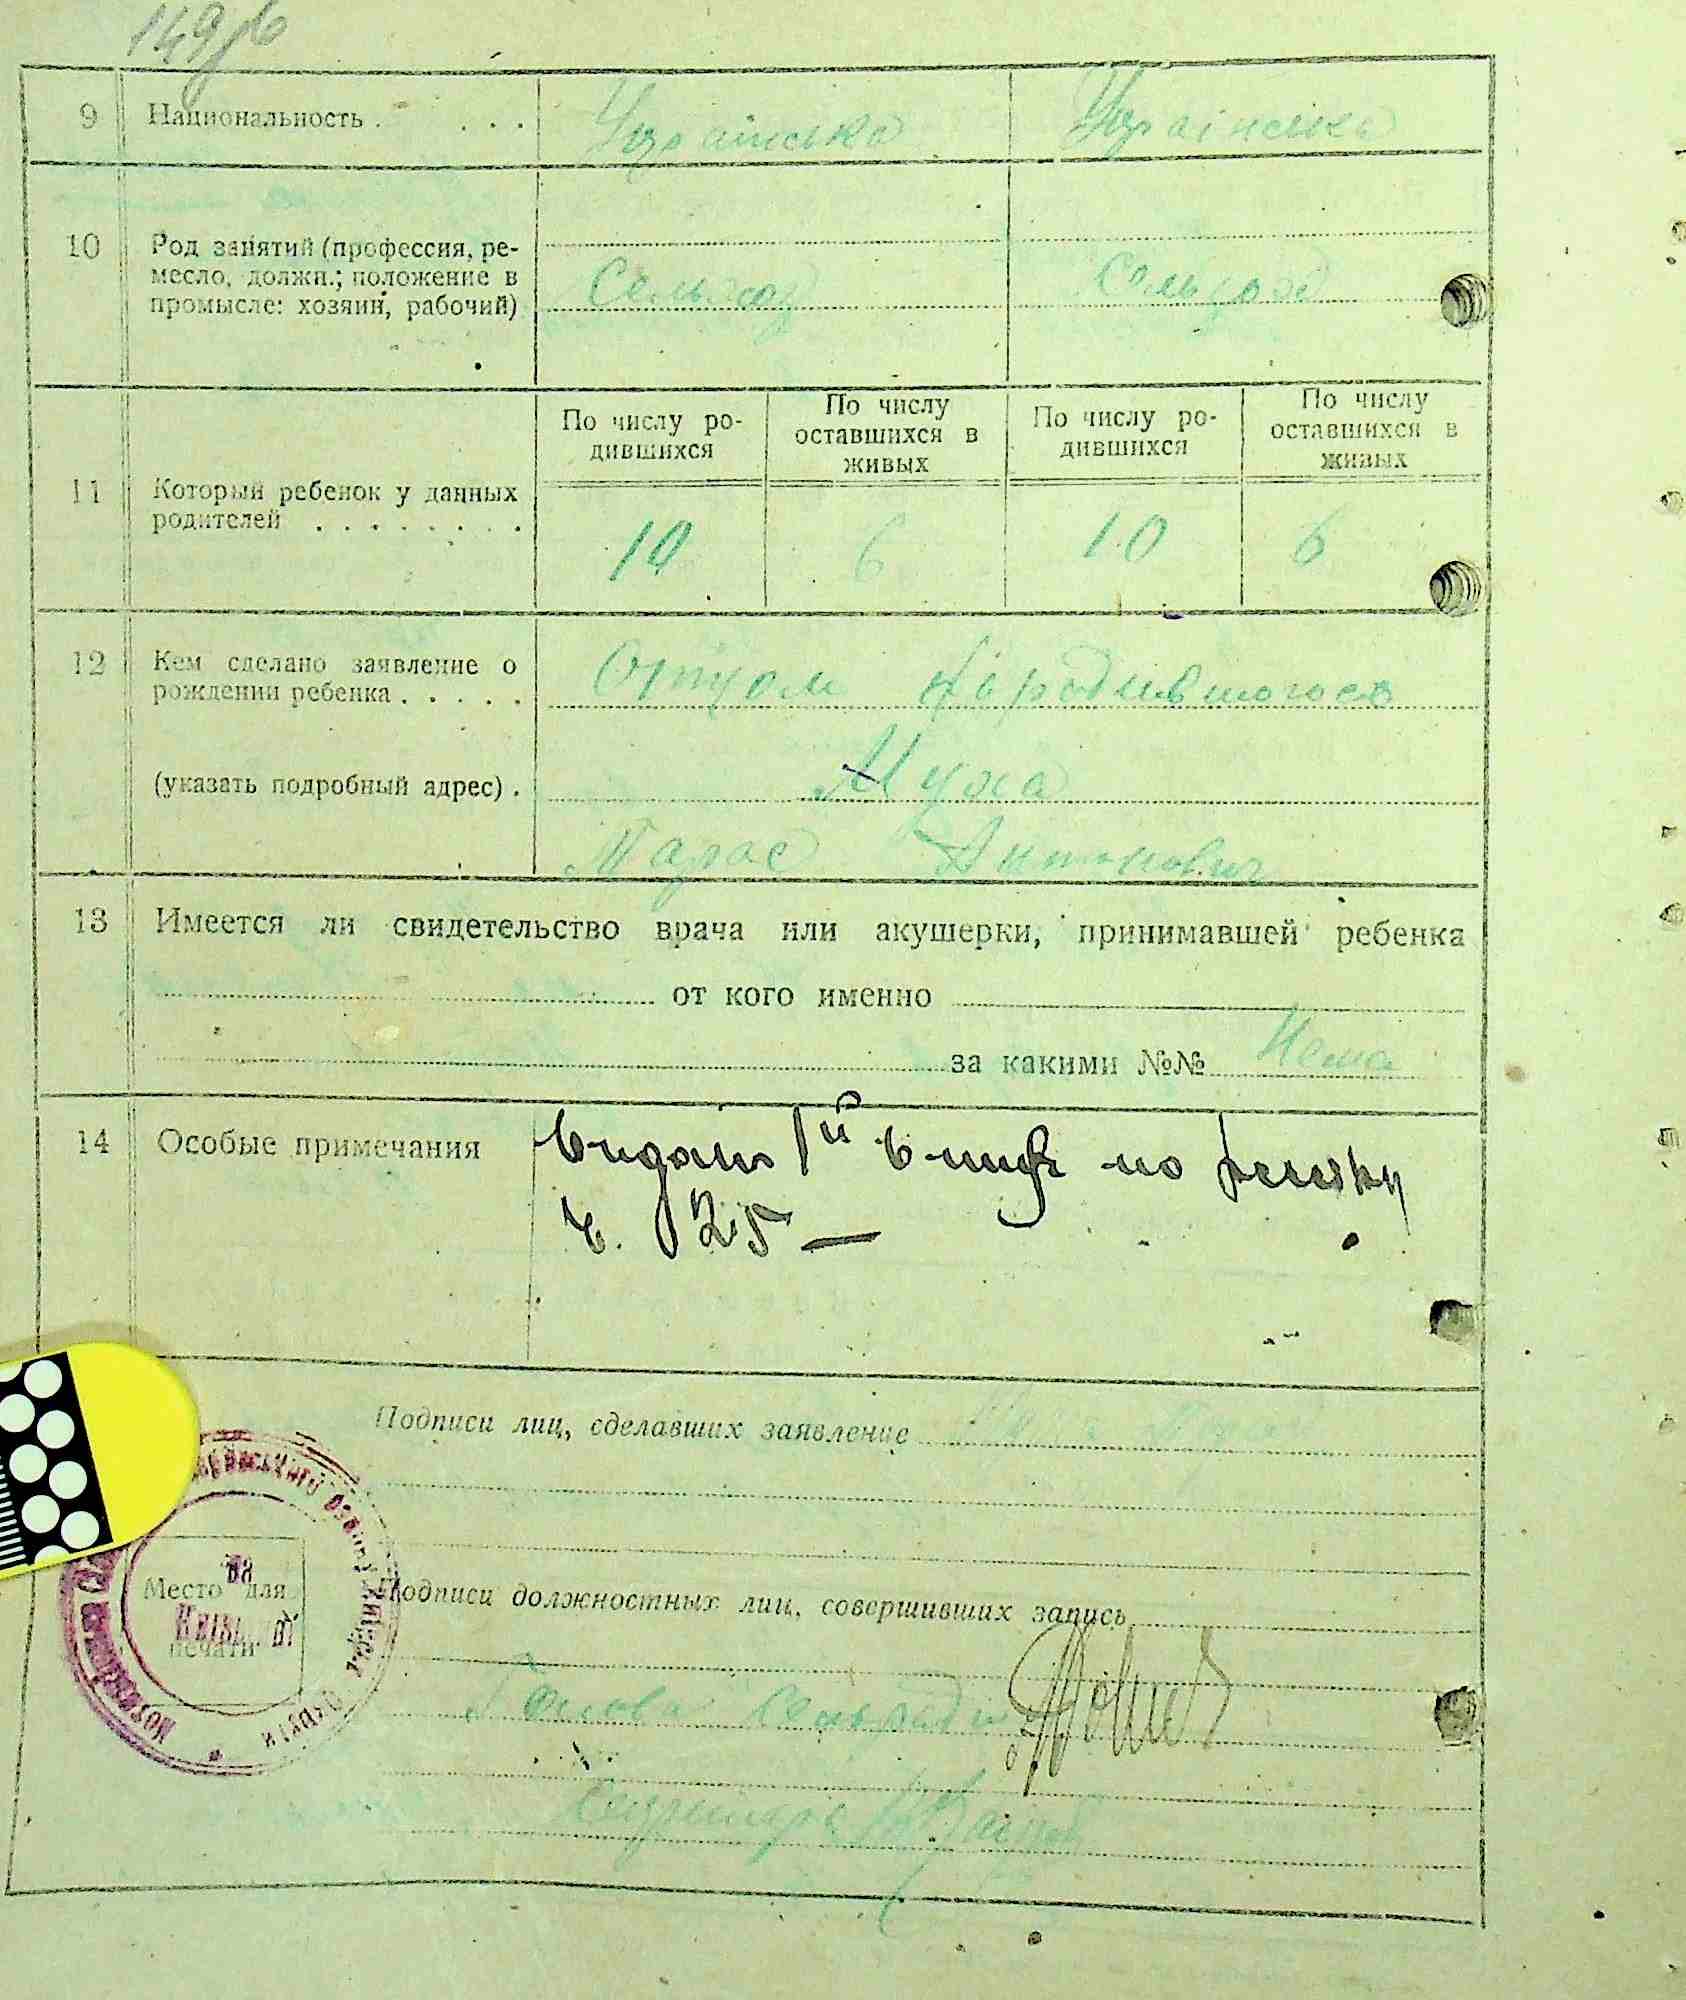 149
9 Национальность . . . . Українська Українська
10 Род занятий (профессия, ре-
месло, должн.; положение в
промысле: хозяин, рабочий)
Сельхоз Сельхоз
11 Который ребенок у данных
родителей . . . . . . . .
По числу ро-
дившихся
По числу
оставшихся в
живых
По числу ро-
дившихся
По числу
оставшихся в
живых
10 6 10 6
12 Кем сделано заявление о
рождении ребенка . . . . .
Отцом народившогося
(указать подробный адрес) . Муха
Тарас Антонович
13 Имеется ли свидетельство врача или акушерки, принимавшей ребенка
от кого именно
за какими №№ Нема
14 Особые примечания
ч. 25 —
Подписи лиц, сделавших заявление
Место для
печати
Подписи должностных лиц, совершивших запись
Голова сельради
Секретарь